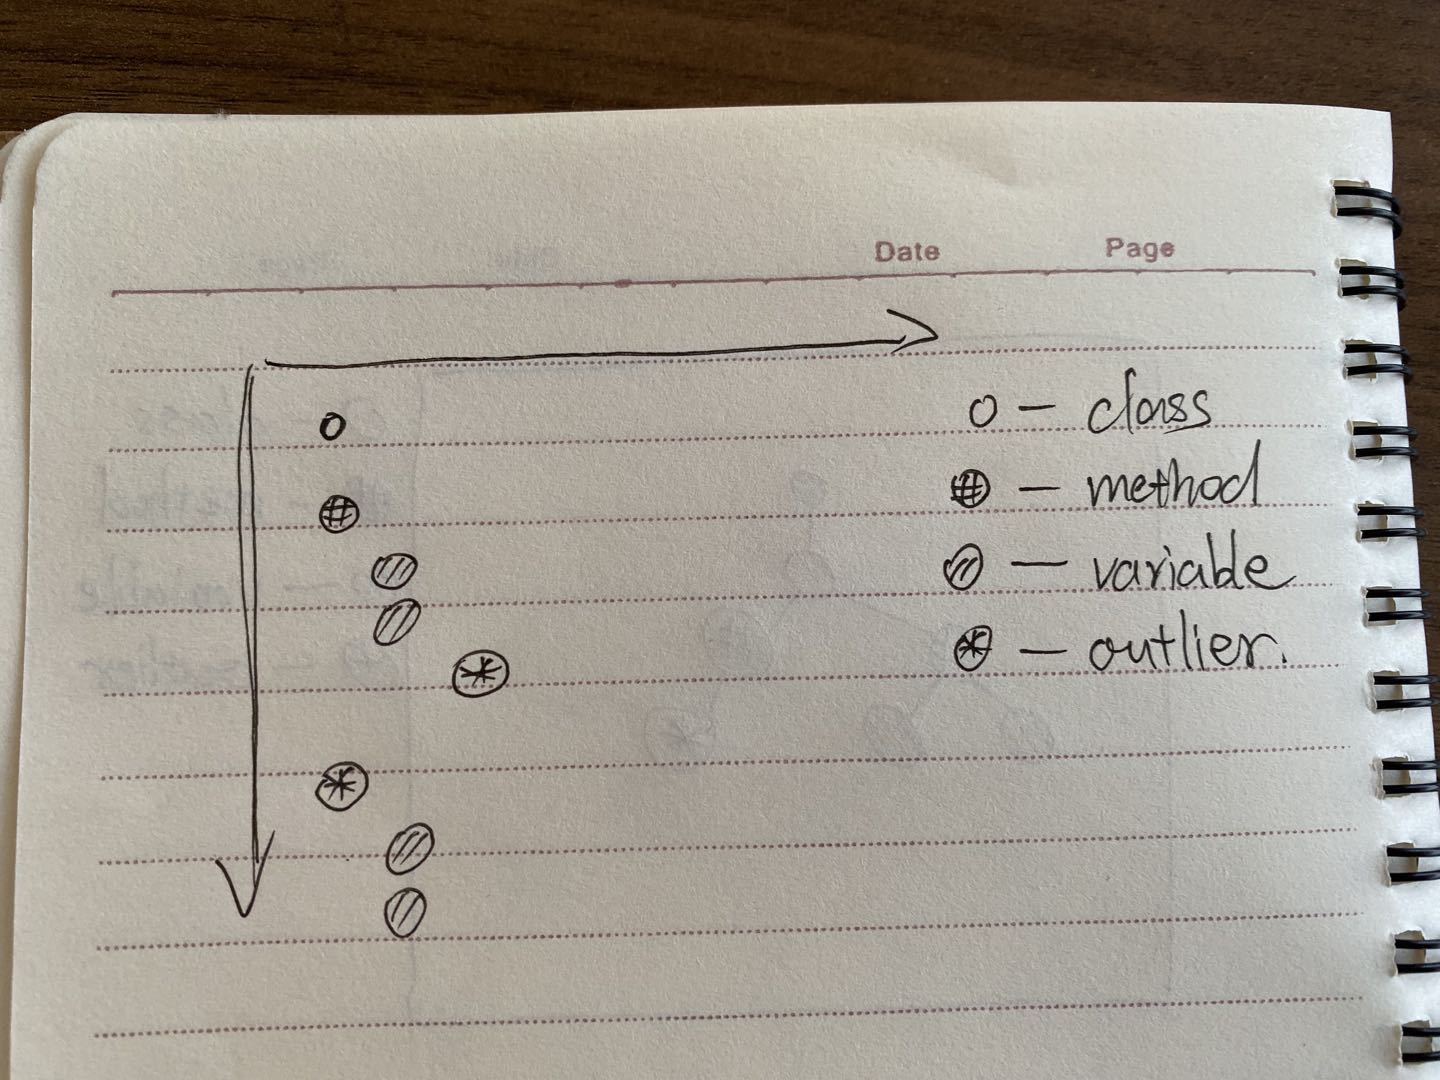 Date Page
O - class
- method
- variable
- outlier.